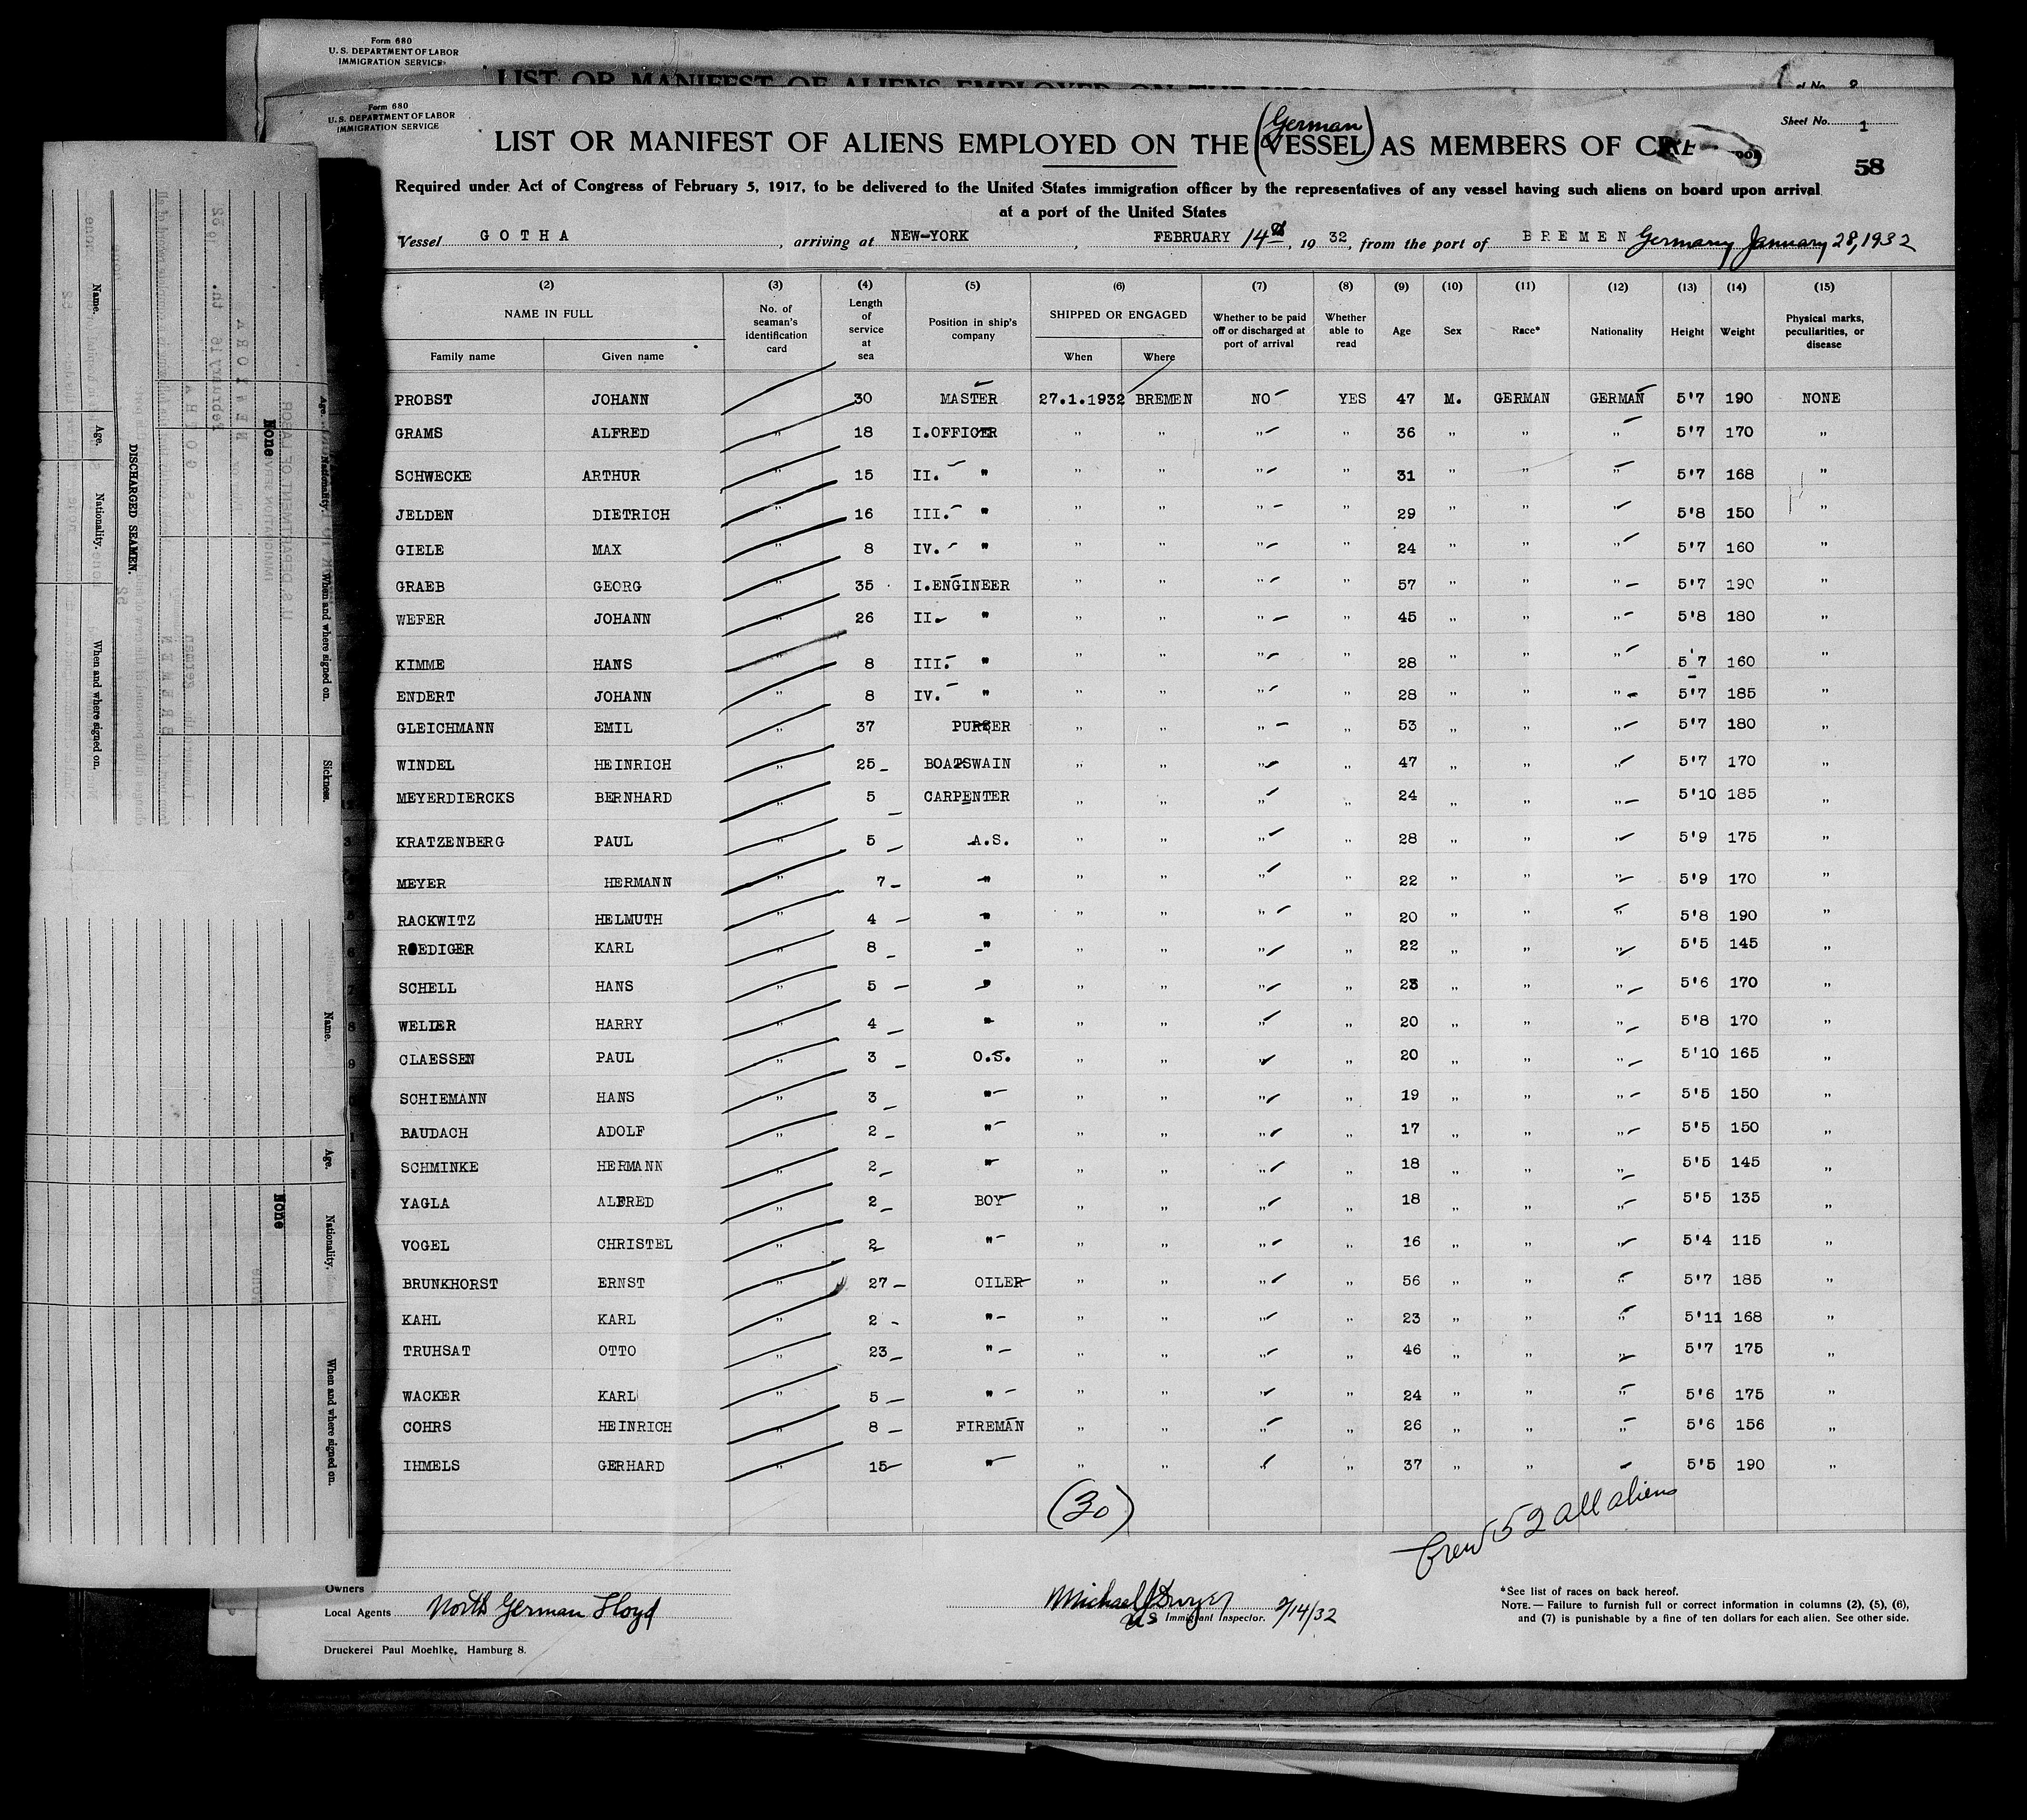 Form 680
U. S. DEPARTMENT OF LABOR
IMMIGRATION SERVICE
LIST OR MANIFEST OF ALIENS EMPLOYED ON THE
Form 680
U. S. DEPARTMENT OF LABOR
IMMIGRATION SERVICE
Sheet No. 1
58
LIST OR MANIFEST OF ALIENS EMPLOYED ON THE (German VESSEL) AS MEMBERS OF
Required under Act of Congress of February 5, 1917, to be delivered to the United States immigration officer by the representatives of any vessel having such aliens on board upon arrival
at a port of the United States
Vessel GOTHA, arriving at NEW-YORK, FEBRUARY 14th, 1932, from the port of BREMEN Germany January 28, 1932
(2) (3) (4) (5) (6) (7) (8) (9) (10) (11) (12) (13) (14) (15)
NAME IN FULL No. of seaman's identification card Length of service at sea Position in ship's company SHIPPED OR ENGAGED Whether to be paid off or discharged at port of arrival Whether able to read Age Sex Race* Nationality Height Weight Physical marks, peculiarities, or disease
Family name Given name When Where
PROBST JOHANN 30 MASTER 27.1.1932 BREMEN NO YES 47 M. GERMAN GERMAN 5'7 190 NONE
GRAMS ALFRED " 18 I.OFFICER " " " " 36 " " " 5'7 170 "
SCHWECKE ARTHUR " 15 II. " " " " " 31 " " " 5'7 168 "
JELDEN DIETRICH " 16 III. " " " " " 29 " " " 5'8 150 "
GIELE MAX " 8 IV. " " " " " 24 " " " 5'7 160 "
GRAEB GEORG " 35 I.ENGINEER " " " " 57 " " " 5'7 190 "
WEFER JOHANN " 26 II. " " " " " 45 " " " 5'8 180 "
KIMME HANS " 8 III. " " " " " 28 " " " 5'7 160 "
ENDERT JOHANN " 8 IV. " " " " " 28 " " " 5'7 185 "
GLEICHMANN EMIL " 37 PURSER " " " " 53 " " " 5'7 180 "
WINDEL HEINRICH " 25 BOATSWAIN " " " " 47 " " " 5'7 170 "
MEYERDIERCKS BERNHARD " 5 CARPENTER " " " " 24 " " " 5'10 185 "
KRATZENBERG PAUL " 5 A.S. " " " " 28 " " " 5'9 175 "
MEYER HERMANN " 7 " " " " " 22 " " " 5'9 170 "
RACKWITZ HELMUTH " 4 " " " " " 20 " " " 5'8 190 "
ROEDIGER KARL " 8 " " " " " 22 " " " 5'5 145 "
SCHELL HANS " 5 " " " " " 23 " " " 5'6 170 "
WELIER HARRY " 4 " " " " " 20 " " " 5'8 170 "
CLAESSEN PAUL " 3 O.S. " " " " 20 " " " 5'10 165 "
SCHIEMANN HANS " 3 " " " " " 19 " " " 5'5 150 "
BAUDACH ADOLF " 2 " " " " " 17 " " " 5'5 150 "
SCHMINKE HERMANN " 2 " " " " " 18 " " " 5'5 145 "
YAGLA ALFRED " 2 BOY " " " " 18 " " " 5'5 135 "
VOGEL CHRISTEL " 2 " " " " " 16 " " " 5'4 115 "
BRUNKHORST ERNST " 27 OILER " " " " 56 " " " 5'7 185 "
KAHL KARL " 2 " " " " " 23 " " " 5'11 168 "
TRUHSAT OTTO " 23 " " " " " 46 " " " 5'7 175 "
WACKER KARL " 5 " " " " " 24 " " " 5'6 175 "
COHRS HEINRICH " 8 FIREMAN " " " " 26 " " " 5'6 156 "
IHMELS GERHARD " 15 " " " " " 37 " " 5'5 190 "
(30)
Crew 52 all aliens
Owners
Local Agents North German Lloyd
Michael J Dwyer
US Immigrant Inspector. 2/14/32
*See list of races on back hereof.
NOTE.— Failure to furnish full or correct information in columns (2), (5), (6),
and (7) is punishable by a fine of ten dollars for each alien. See other side.
Druckerei Paul Moehlke, Hamburg 8.
DISCHARGED SEAMEN.
Name. Age. Nationality. When and where signed on.
Age. Nationality. When and where signed on. Sickness.
None
Name. Age. Nationality. When and where signed on.
None